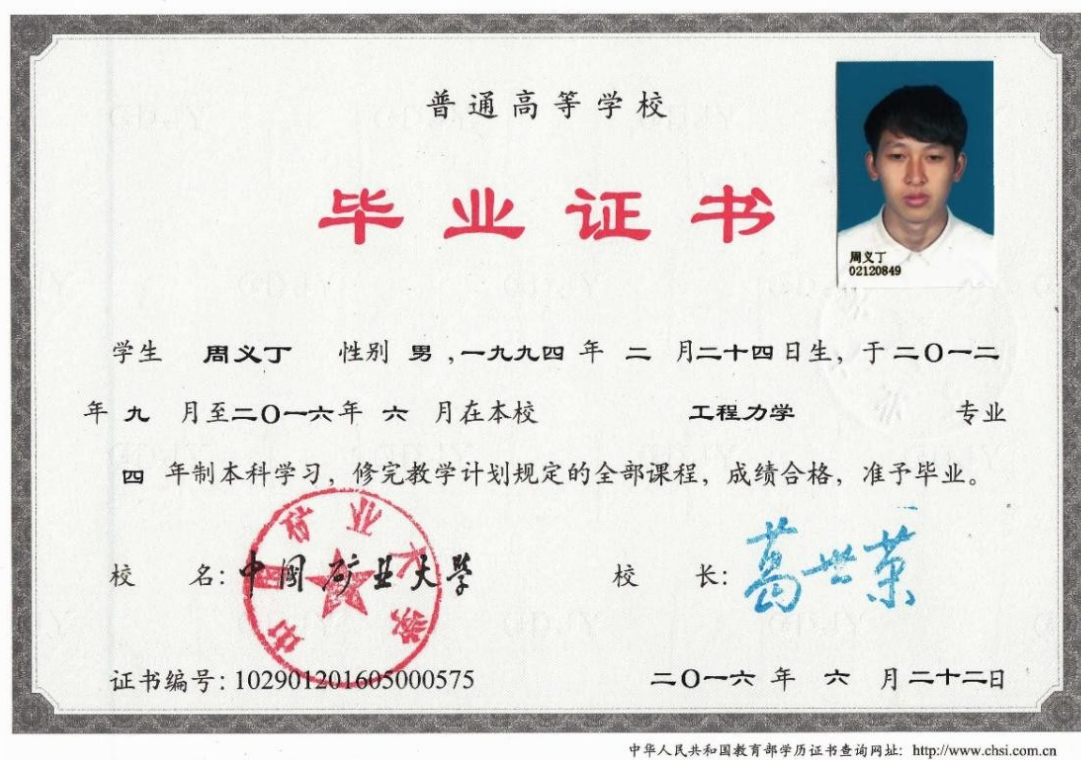 普通高等学校
毕业证书
周义丁
02120849
学生 周义丁 性别 男 ,一九九四 年 二 月二十四日生, 于二〇一二
年 九 月至二〇一六年 六 月在本校 工程力学 专业
四 年制本科学习, 修完教学计划规定的全部课程, 成绩合格, 准予毕业。
中国矿业大学
校 名: 中国矿业大学 校 长: 葛世荣
证书编号: 102901201605000575 二〇一六 年 六 月二十二日
中华人民共和国教育部学历证书查询网址: http://www.chsi.com.cn